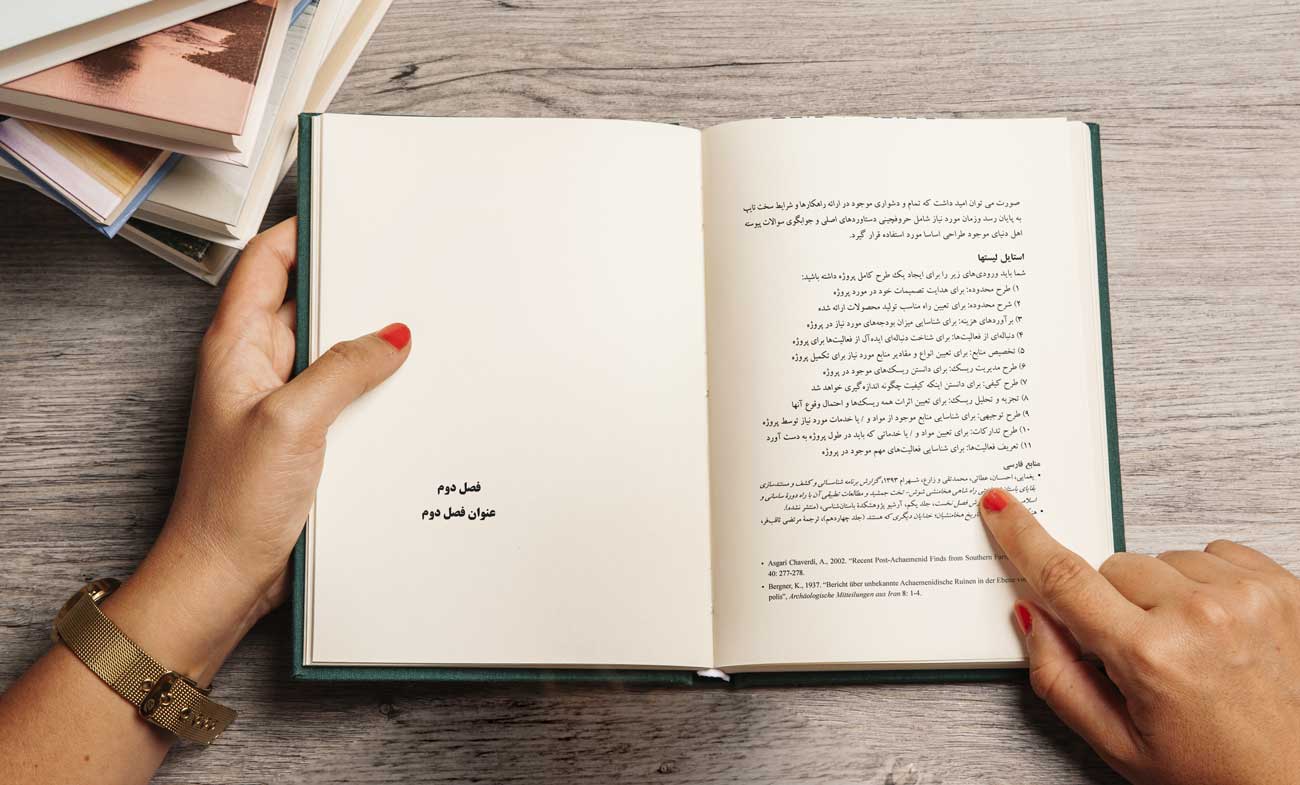 فصل دوم
عنوان فصل دوم
صورت می توان امید داشت که تمام و دشواری موجود در ارائه راهکارها و شرایط سخت تایپ
به پایان رسد وزمان مورد نیاز شامل حروفچینی دستاوردهای اصلی و جوابگوی سوالات پیوسته
اهل دنیای موجود طراحی اساسا مورد استفاده قرار گیرد.
استایل لیستها
شما باید ورودی‌های زیر را برای ایجاد یک طرح کامل پروژه داشته باشید:
۱) طرح محدوده: برای هدایت تصمیمات خود در مورد پروژه
۲) شرح محدوده: برای تعیین راه مناسب تولید محصولات ارائه شده
۳) برآوردهای هزینه: برای شناسایی میزان بودجه‌های مورد نیاز در پروژه
۴) دنباله‌ای از فعالیت‌ها: برای شناخت دنباله‌ای ایده‌آل از فعالیت‌ها برای پروژه
۵) تخصیص منابع: برای تعیین انواع و مقادیر منابع مورد نیاز برای تکمیل پروژه
۶) طرح مدیریت ریسک: برای دانستن ریسک‌های موجود در پروژه
۷) طرح کیفی: برای دانستن اینکه کیفیت چگونه اندازه‌گیری خواهد شد
۸) تجزیه و تحلیل ریسک: برای تعیین اثرات همه ریسک‌ها و احتمال وقوع آنها
۹) طرح توجیهی: برای شناسایی منابع موجود از مواد و / یا خدمات مورد نیاز توسط پروژه
۱۰) طرح تدارکات: برای تعیین مواد و / یا خدماتی که باید در طول پروژه به دست آورد
۱۱) تعریف فعالیت‌ها: برای شناسایی فعالیت‌های مهم موجود در پروژه
منابع فارسی
• یغمایی، احسان، عطائی، محمدتقی و زارع، شهرام ۱۳۹۳، گزارش برنامه شناسائی و کشف و مستندسازی
بقایای راه شاهی هخامنشی شوش- تخت جمشید و مطالعات تطبیقی آن با راه دورۀ ساسانی و
فصل نخست، جلد یکم، آرشیو پژوهشکدۀ باستان‌شناسی، (منتشر نشده).
• تاریخ هخامنشیان: خدایان دیگری که هستند (جلد چهاردهم)، ترجمۀ مرتضی ثاقب‌فر،
• Asgari Chaverdi, A., 2002. “Recent Post-Achaemenid Finds from Southern
40: 277-278.
• Bergner, K., 1937. “Bericht über unbekannte Achaemenidische Ruinen in der Ebene
polis”, Archäologische Mitteilungen aus Iran 8: 1-4.